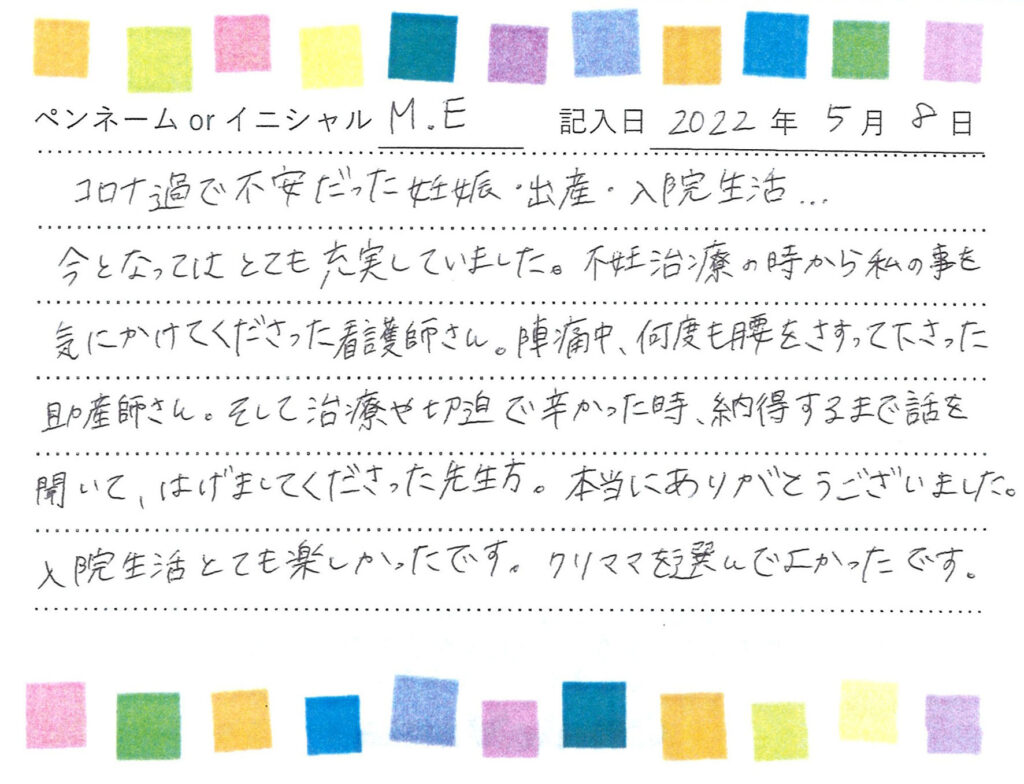 ペンネーム or イニシャル M.E 記入日 2022 年 5 月 8 日
コロナ過で不安だった妊娠・出産・入院生活...
今となってはとても充実していました。不妊治療の時から私の事を
気にかけてくださった看護師さん。陣痛中、何度も腰をさすって下さった
助産師さん。そして治療や切迫で辛かった時、納得するまで話を
聞いて、はげましてくださった先生方。本当にありがとうございました。
入院生活とても楽しかったです。クリママを選んでよかったです。